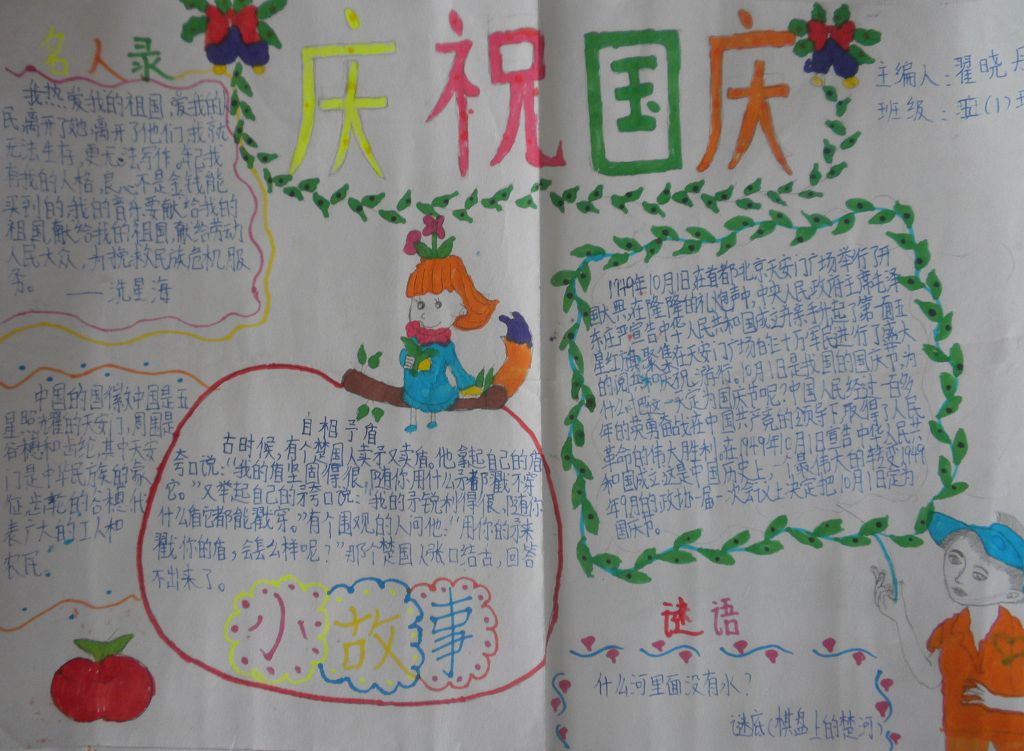 庆祝国庆
主编人：翟晓丹
班级：五(1)班
名人录
我热爱我的祖国,爱我的人
民,离开了她,离开了他们,我就
无法生存,更无法写作。
有我的人格,良心不是金钱能
买到的,我的音乐要献给我的
祖国,献给我的祖国,献给劳动
人民大众,为挽救民族危机服
务。——洗星海
中国的国徽中国是五
星照耀的天安门,周围是
谷穗和齿轮,其中天安
门是中华民族的象
征,齿轮的谷穗代
表广大的工人和
农民。
自相矛盾
古时候,有个楚国人卖矛又卖盾。他拿起自己的盾
夸口说：“我的盾坚固得很,随你用什么矛都戳不穿
它。”又举起自己的矛夸口说：“我的矛锐利得很,随你
什么盾它都能戳穿。”有个围观的人问他：“用你的矛来
戳你的盾,会怎么样呢？”那个楚国人张口结舌,回答
不出来了。
小故事
1949年10月1日在首都北京天安门广场举行了开
国大典,在隆隆的礼炮声中,中央人民政府主席毛泽
东庄严宣告中华人民共和国成立并亲手升起了第一面五
星红旗。聚集在天安门广场的三十万军民进行了盛大
的阅兵和庆祝游行。10月1日是我国的国庆节,为
什么把这一天定为国庆节呢？中国人民经过一百多
年的英勇奋战在中国共产党的领导下,取得了人民
革命的伟大胜利。在1949年10月1日宣告中华人民共
和国成立这是中国历史上,一个最伟大的转变1949
年9月的政协一届一次会议上决定把10月1日定为
国庆节。
谜语
什么河里面没有水？
谜底(棋盘上的楚河)